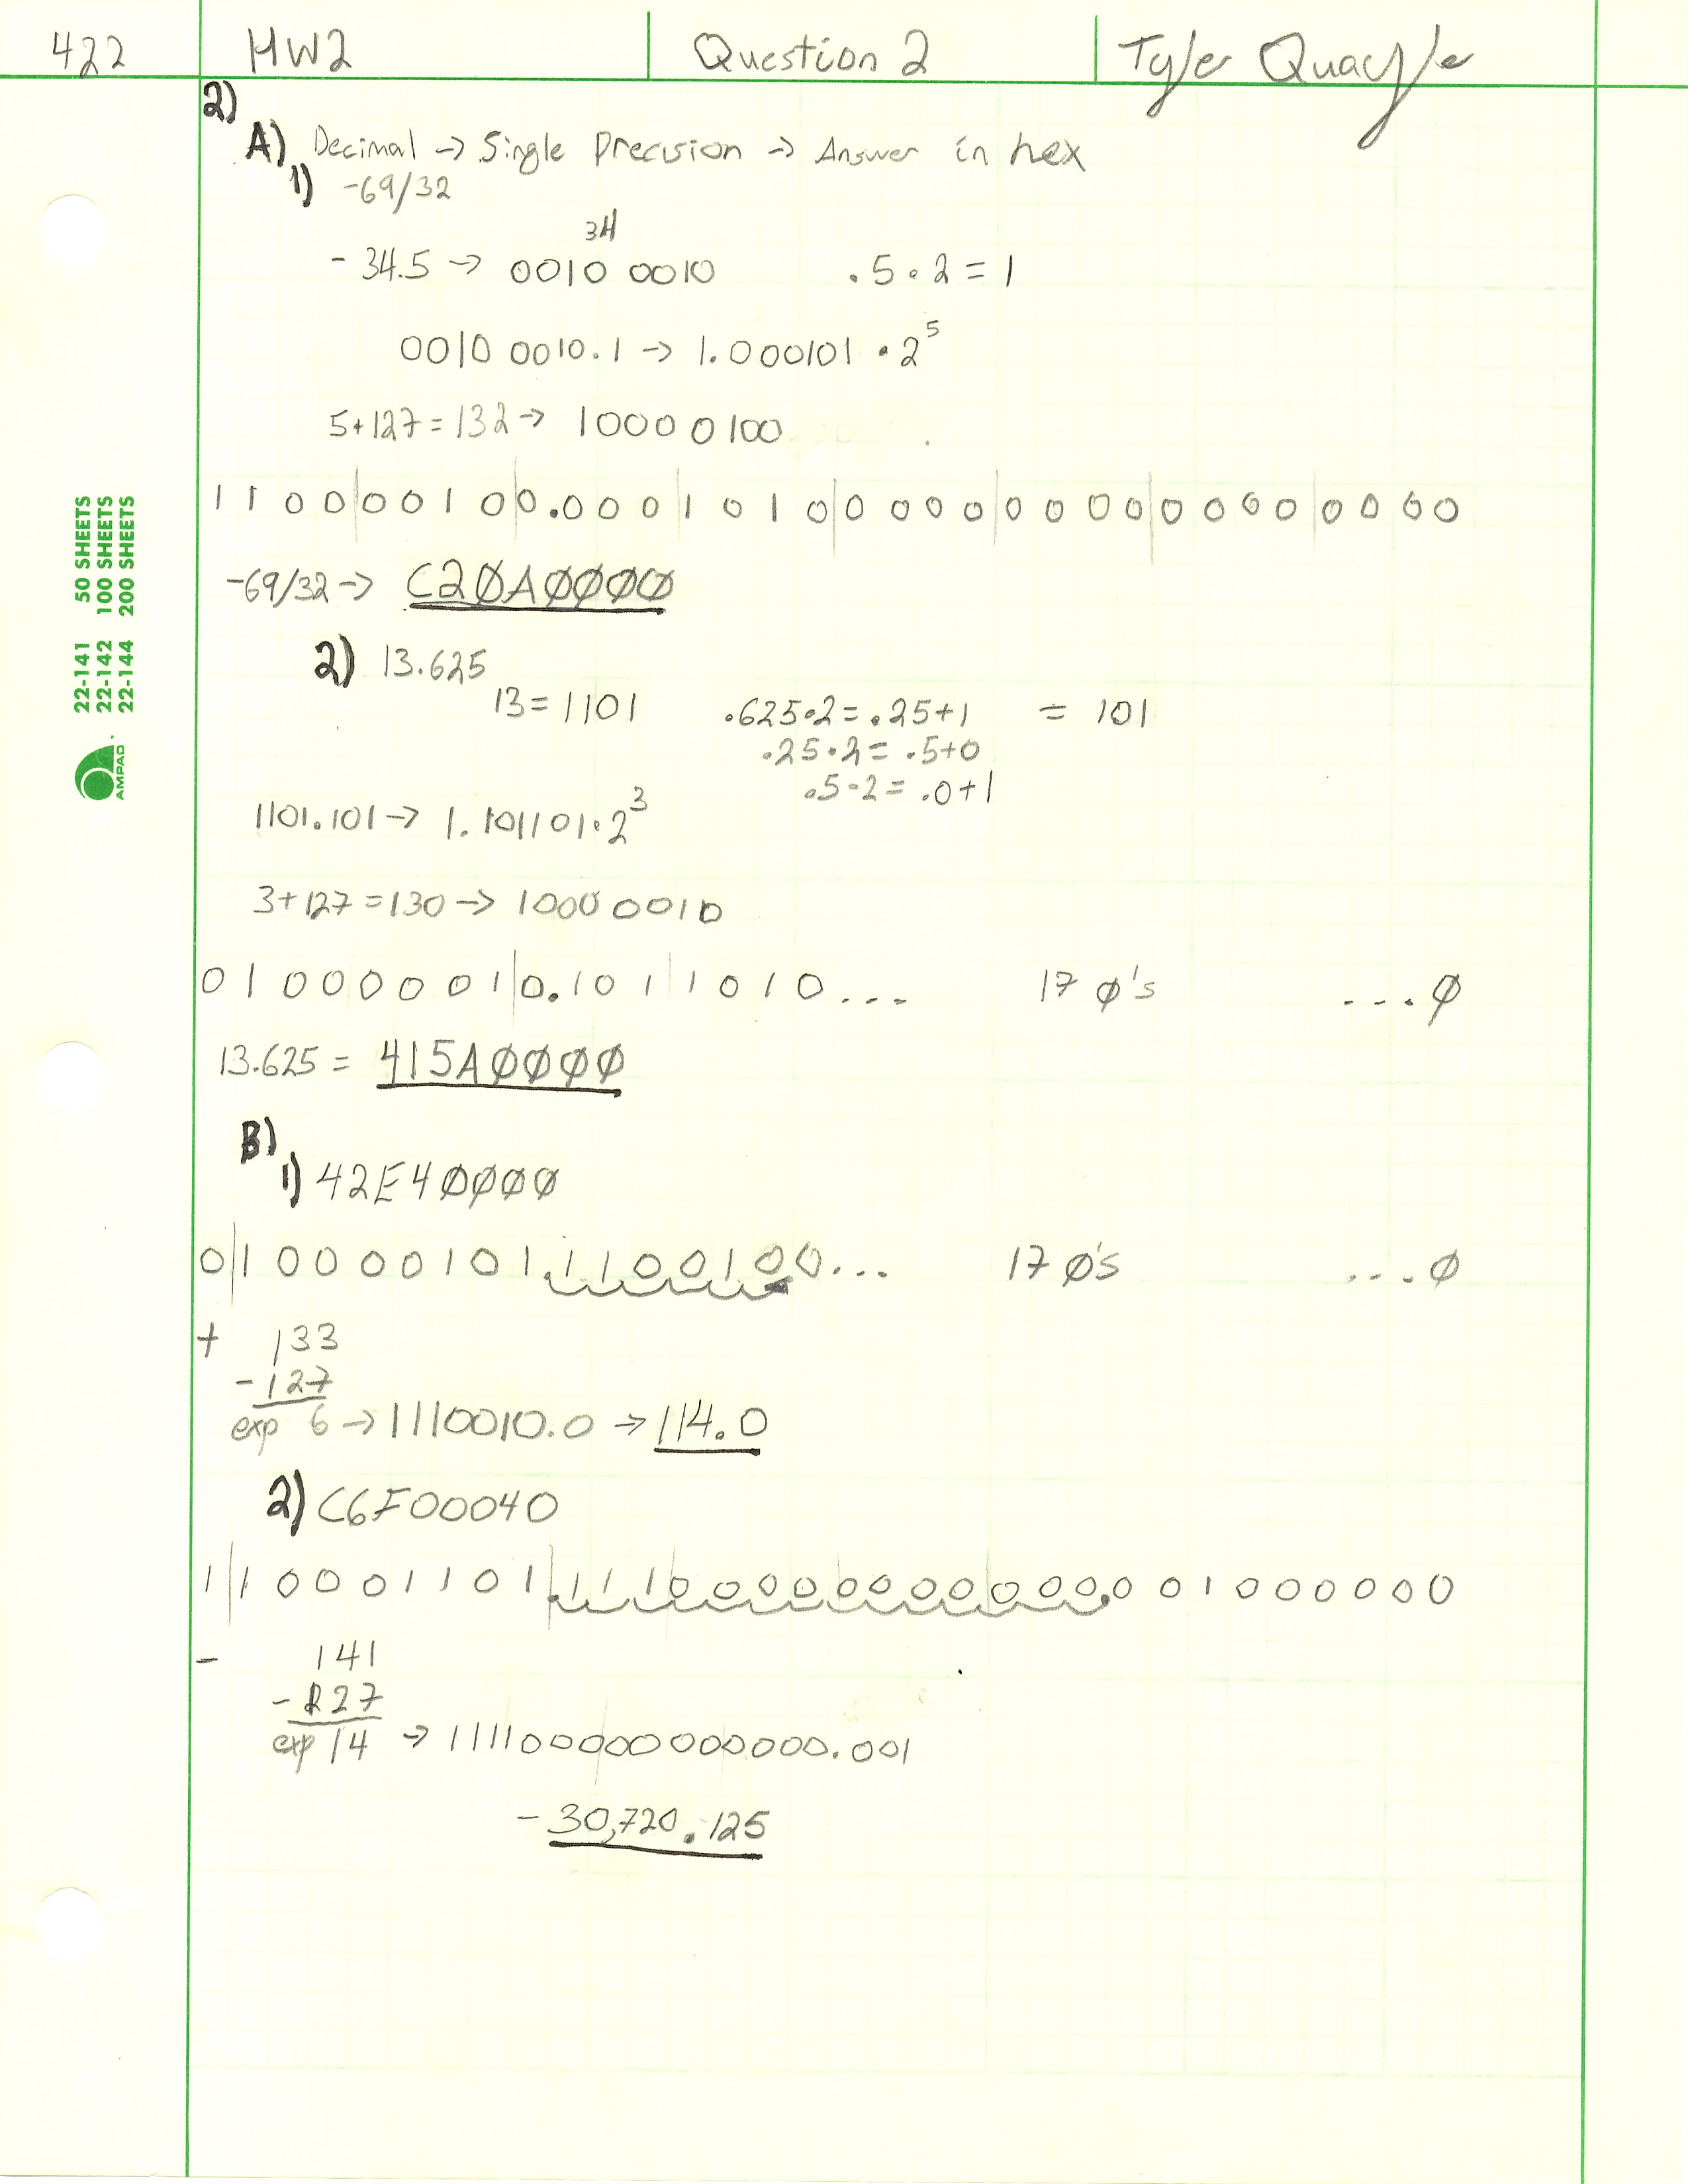 422 HW2 Question 2 Tyler Quayle
2)
A) Decimal → Single Precision → Answer in hex
1) -69/32
34
- 34.5 → 0010 0010 .5 • 2 = 1
0010 0010.1 → 1.000101 • 2^5
5+127=132 → 1000 0100
1 1 0 0 0 0 1 0 0.0 0 0 1 0 1 0 0 0 0 0 0 0 0 0 0 0 0 0 0 0 0 0
-69/32 → C2ØAØØØØ
2) 13.625
13=1101 .625•2=.25+1 = 101
.25•2= .5+0
.5•2= .0+1
1101.101 → 1.101101•2^3
3+127=130 → 1000 0010
0 1 0 0 0 0 0 1 0.1 0 1 1 0 1 0... 17 Ø's ...Ø
13.625 = 415AØØØØ
B)
1) 42E4ØØØØ
0 1 0 0 0 0 1 0 1.1 1 0 0 1 0 0... 17 Ø's ...Ø
+ 133
-127
exp 6 → 1110010.0 → 114.0
2) C6F00040
1 1 0 0 0 1 1 0 1.1 1 1 0 0 0 0 0 0 0 0 0 0 0.0 0 1 0 0 0 0 0 0
- 141
-127
exp 14 → 111100000000000.001
- 30,720.125
22-141 50 SHEETS
22-142 100 SHEETS
22-144 200 SHEETS
AMPAD